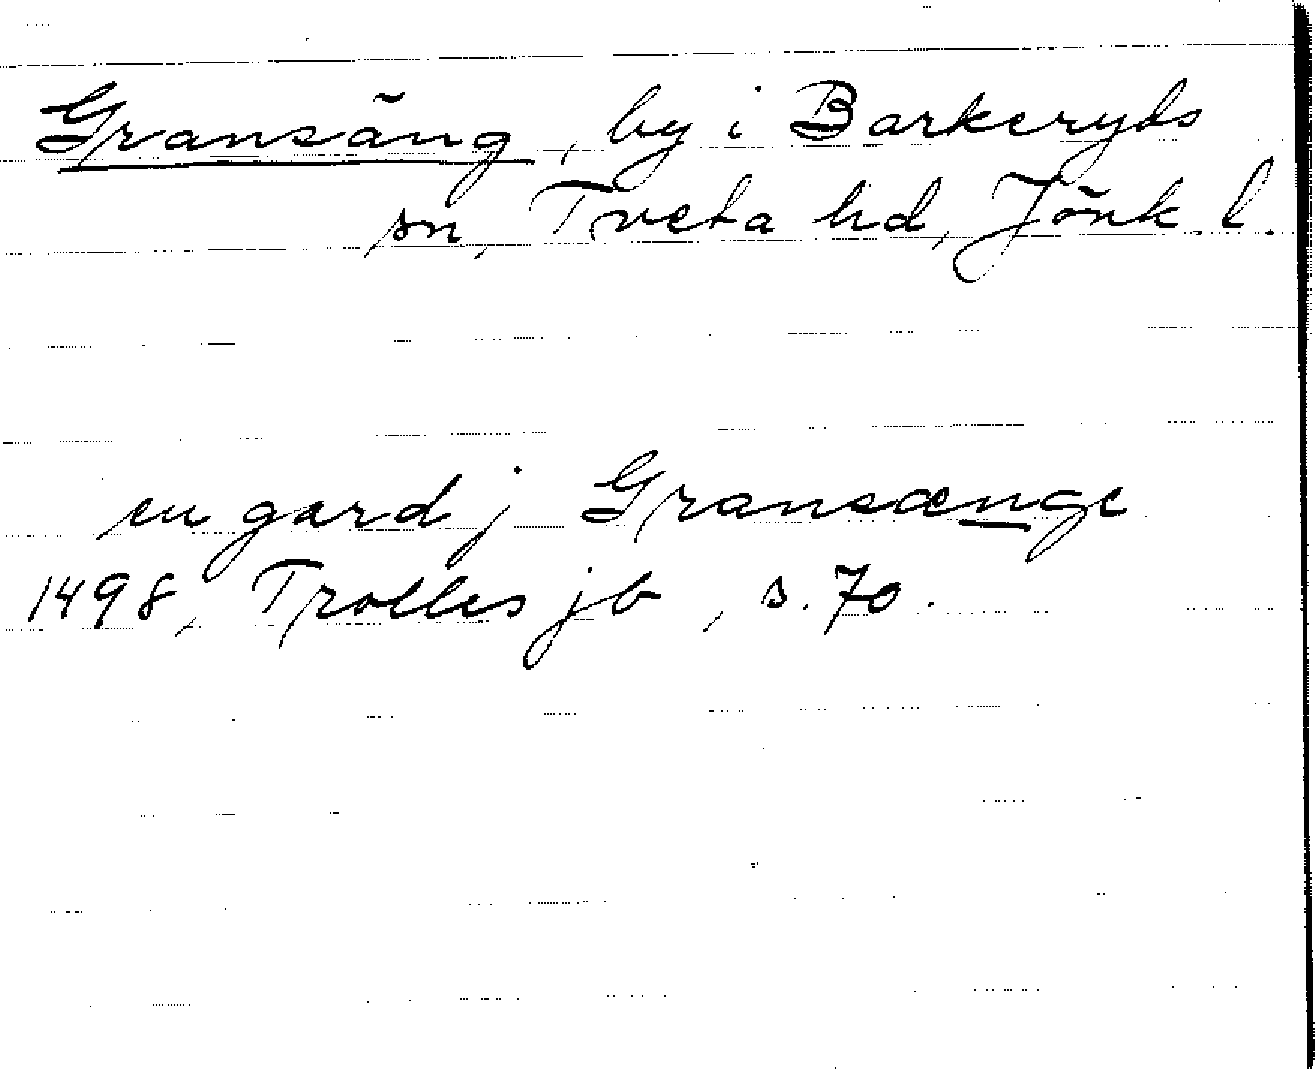 Gransäng, by i Barkeryds
sn, Tveta hd, Jönk. l.
en gard j Gransænge
1498, Trolles jb, s. 70.